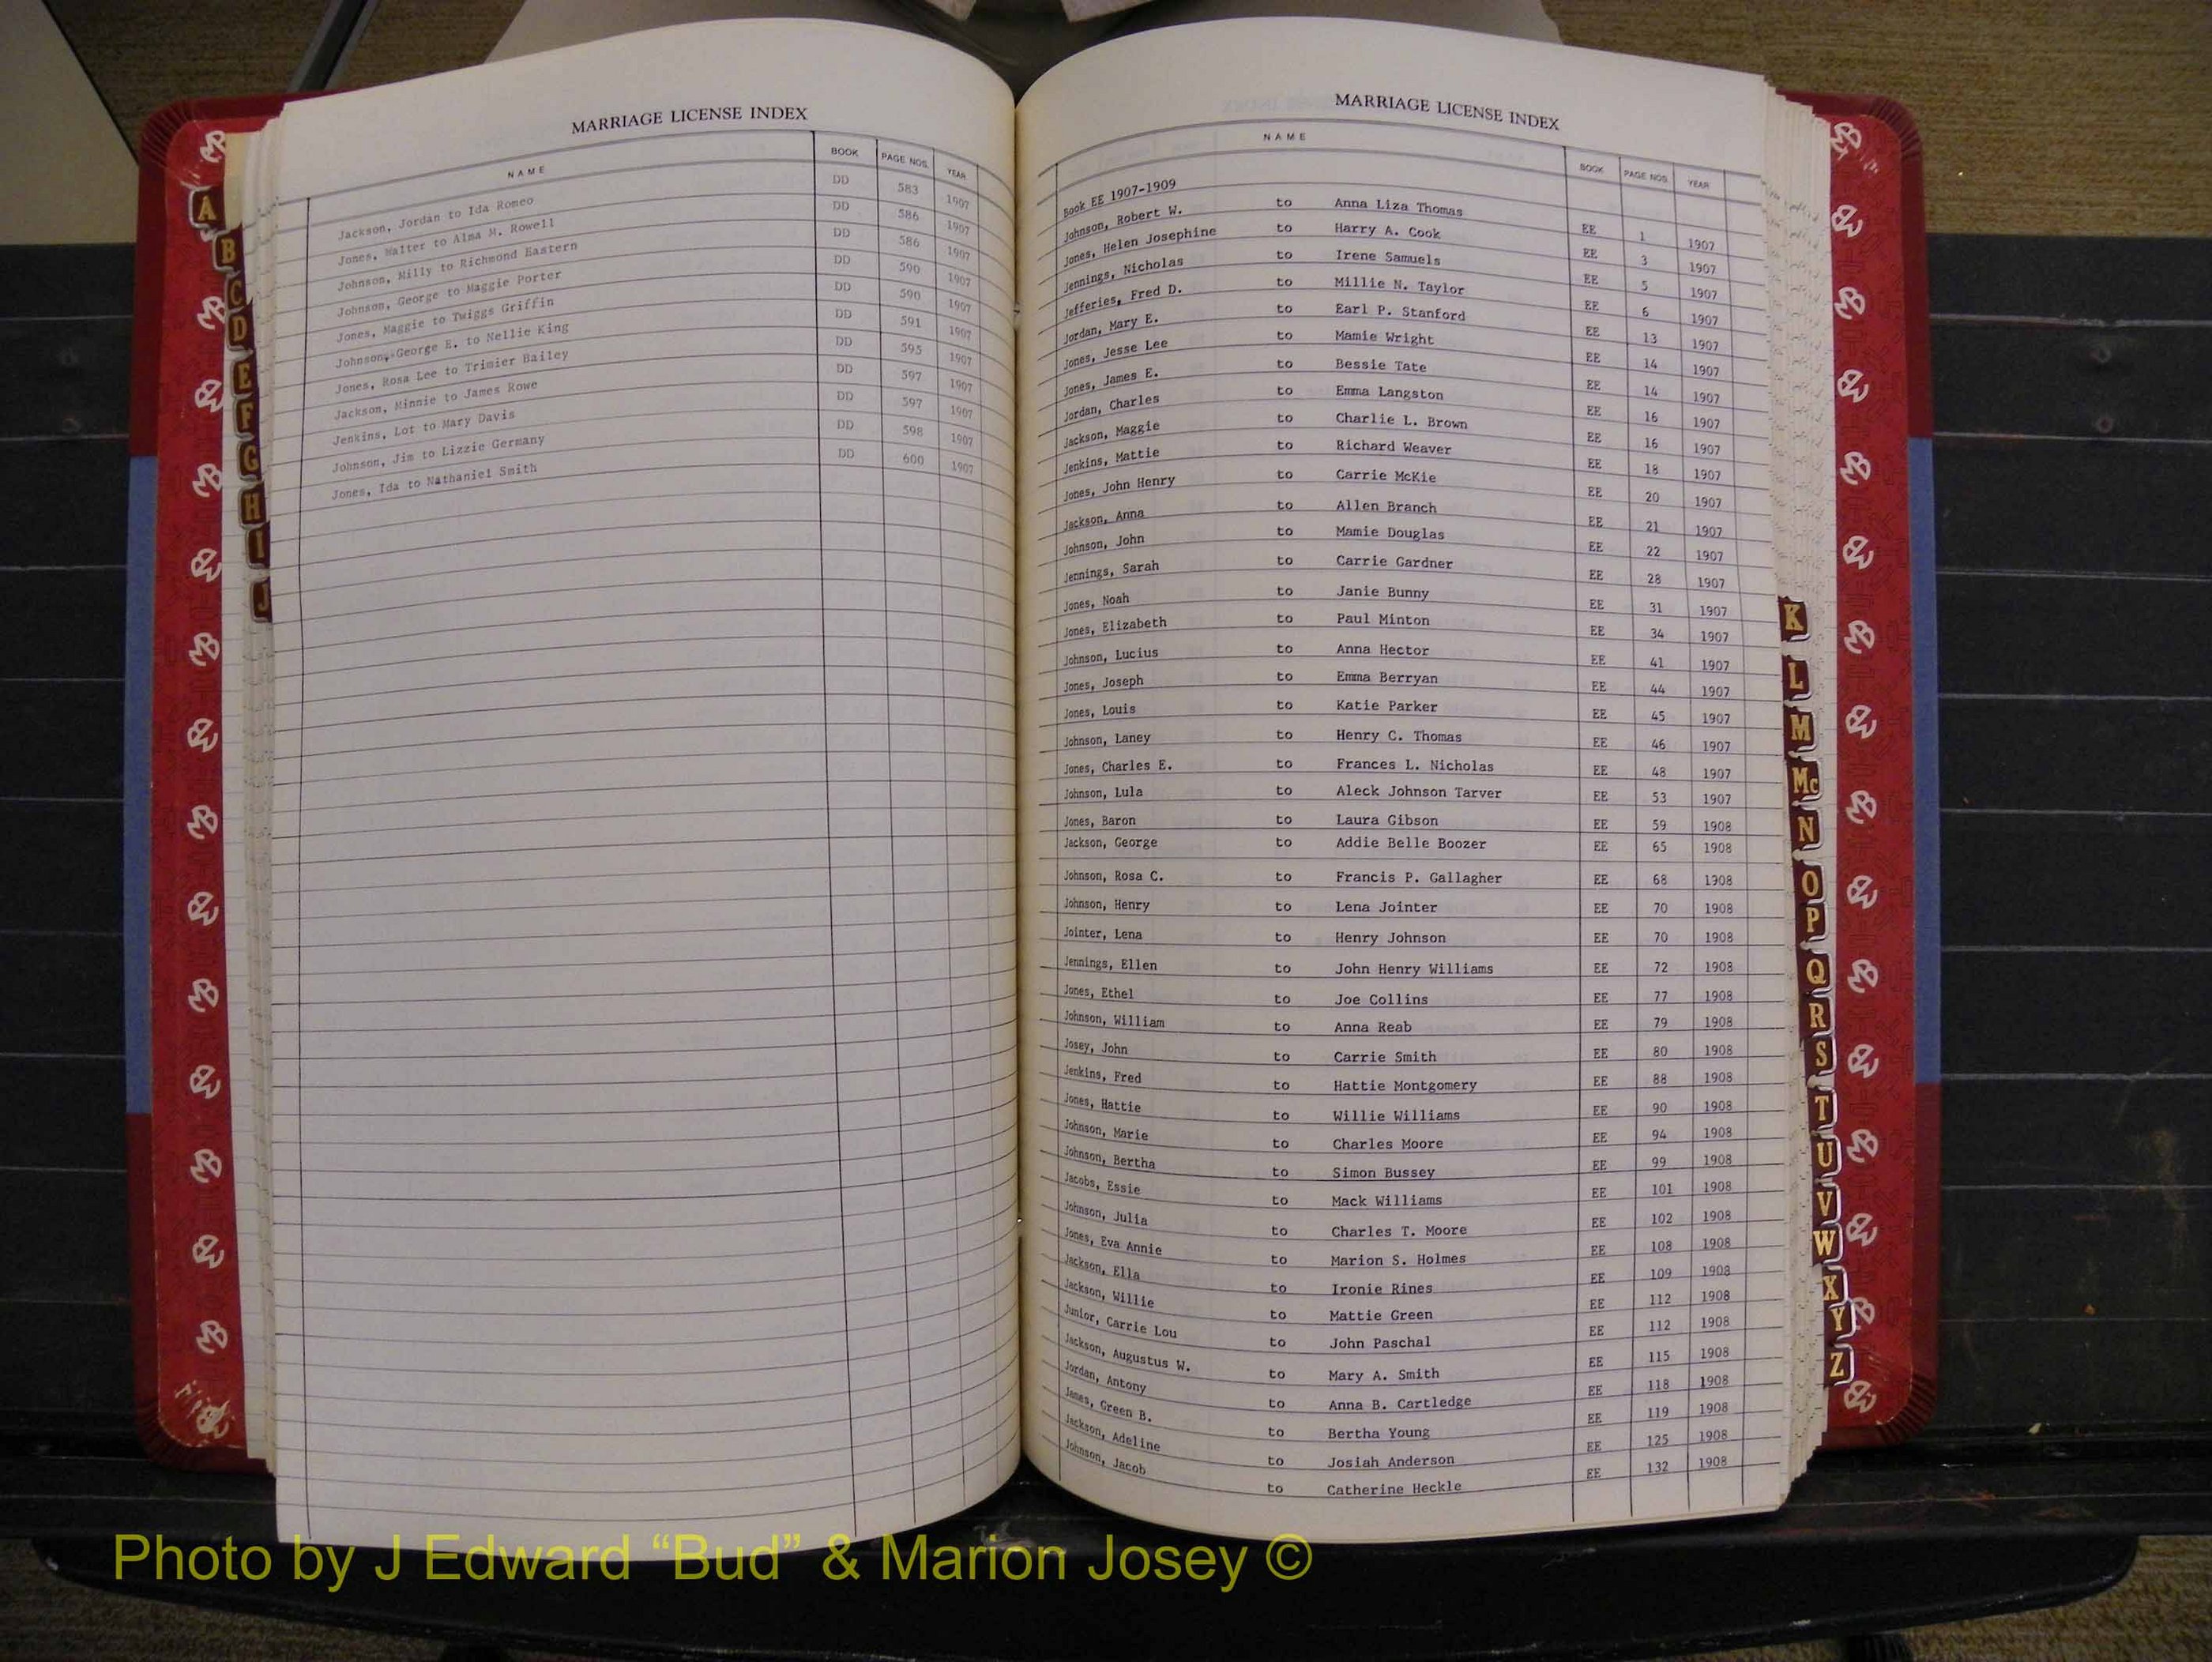 MARRIAGE LICENSE INDEX
NAME BOOK PAGE NOS. YEAR
Jackson, Jordan to Ida Romeo DD 583 1907
Jones, Walter to Alma M. Rowell DD 586 1907
Johnson, Milly to Richmond Eastern DD 586 1907
Johnson, George to Maggie Porter DD 590 1907
Jones, Maggie to Twiggs Griffin DD 590 1907
Johnson, George E. to Nellie King DD 591 1907
Jones, Rosa Lee to Trimier Bailey DD 595 1907
Jackson, Minnie to James Rowe DD 597 1907
Jenkins, Lot to Mary Davis DD 597 1907
Johnson, Jim to Lizzie Germany DD 598 1907
Jones, Ida to Nathaniel Smith DD 600 1907
A
B
C
D
E
F
G
H
I
J
MARRIAGE LICENSE INDEX
NAME BOOK PAGE NOS. YEAR
Book EE 1907-1909
Johnson, Robert W. to Anna Liza Thomas EE 1 1907
Jones, Helen Josephine to Harry A. Cook EE 3 1907
Jennings, Nicholas to Irene Samuels EE 5 1907
Jefferies, Fred D. to Millie N. Taylor EE 6 1907
Jordan, Mary E. to Earl P. Stanford EE 13 1907
Jones, Jesse Lee to Mamie Wright EE 14 1907
Jones, James E. to Bessie Tate EE 14 1907
Jordan, Charles to Emma Langston EE 16 1907
Jackson, Maggie to Charlie L. Brown EE 16 1907
Jenkins, Mattie to Richard Weaver EE 18 1907
Jones, John Henry to Carrie McKie EE 20 1907
Jackson, Anna to Allen Branch EE 21 1907
Johnson, John to Mamie Douglas EE 22 1907
Jennings, Sarah to Carrie Gardner EE 28 1907
Jones, Noah to Janie Bunny EE 31 1907
Jones, Elizabeth to Paul Minton EE 34 1907
Johnson, Lucius to Anna Hector EE 41 1907
Jones, Joseph to Emma Berryan EE 44 1907
Jones, Louis to Katie Parker EE 45 1907
Johnson, Laney to Henry C. Thomas EE 46 1907
Jones, Charles E. to Frances L. Nicholas EE 48 1907
Johnson, Lula to Aleck Johnson Tarver EE 53 1907
Jones, Baron to Laura Gibson EE 59 1908
Jackson, George to Addie Belle Boozer EE 65 1908
Johnson, Rosa C. to Francis P. Gallagher EE 68 1908
Johnson, Henry to Lena Jointer EE 70 1908
Jointer, Lena to Henry Johnson EE 70 1908
Jennings, Ellen to John Henry Williams EE 72 1908
Jones, Ethel to Joe Collins EE 77 1908
Johnson, William to Anna Reab EE 79 1908
Josey, John to Carrie Smith EE 80 1908
Jenkins, Fred to Hattie Montgomery EE 88 1908
Jones, Hattie to Willie Williams EE 90 1908
Johnson, Marie to Charles Moore EE 94 1908
Johnson, Bertha to Simon Bussey EE 99 1908
Jacobs, Essie to Mack Williams EE 101 1908
Johnson, Julia to Charles T. Moore EE 102 1908
Jones, Eva Annie to Marion S. Holmes EE 108 1908
Jackson, Ella to Ironie Rines EE 109 1908
Jackson, Willie to Mattie Green EE 112 1908
Junior, Carrie Lou to John Paschal EE 112 1908
Jackson, Augustus W. to Mary A. Smith EE 115 1908
Jordan, Antony to Anna B. Cartledge EE 118 1908
James, Green B. to Bertha Young EE 119 1908
Jackson, Adeline to Josiah Anderson EE 125 1908
Johnson, Jacob to Catherine Heckle EE 132 1908
K
L
M
Mc
N
O
P
Q
R
S
T
U
V
W
X
Y
Z
Photo by J Edward “Bud” & Marion Josey ©